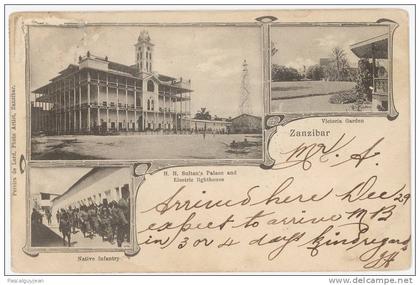 Pereira de Lord, Photo Artist, Zanzibar.
Victoria Garden
Zanzibar
H. H. Sultan's Palace and
Electric lighthouse
Native Infantry
Arrived here Dec 29
expect to arrive
in 3 or 4 days Kind regards
delcampe.net
AlgUyjean